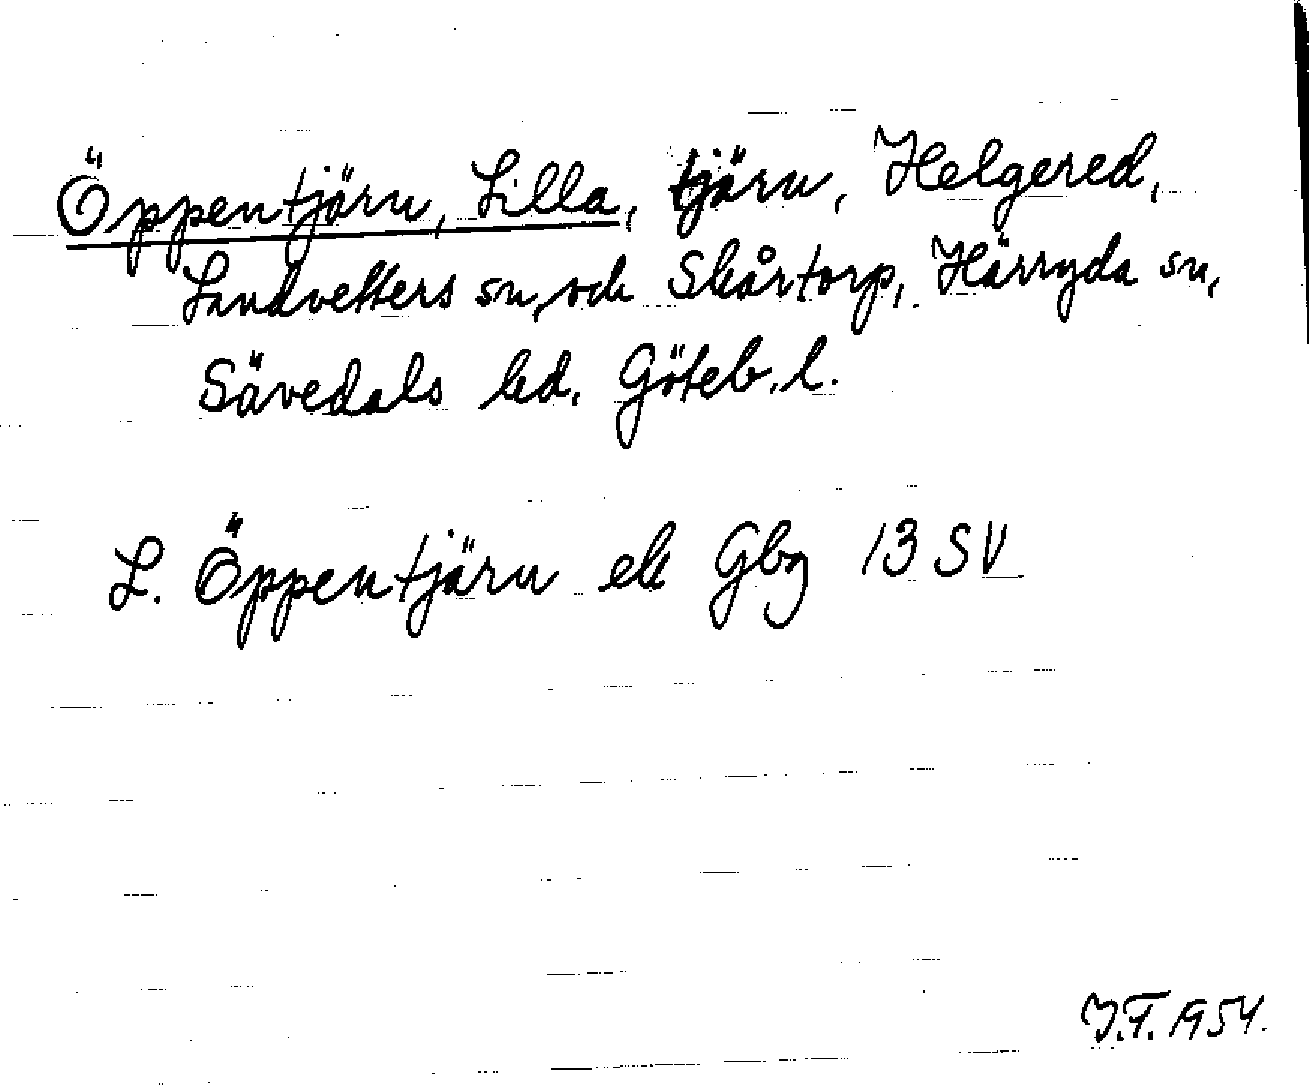 Öppentjärn, Lilla, tjärn, Helgered,
Landvetters sn, och Skårtorp, Härryda sn,
Sävedals hd. Göteb. l.
L. Öppentjärn ek Gbg 13 SV
J.F. 1954.